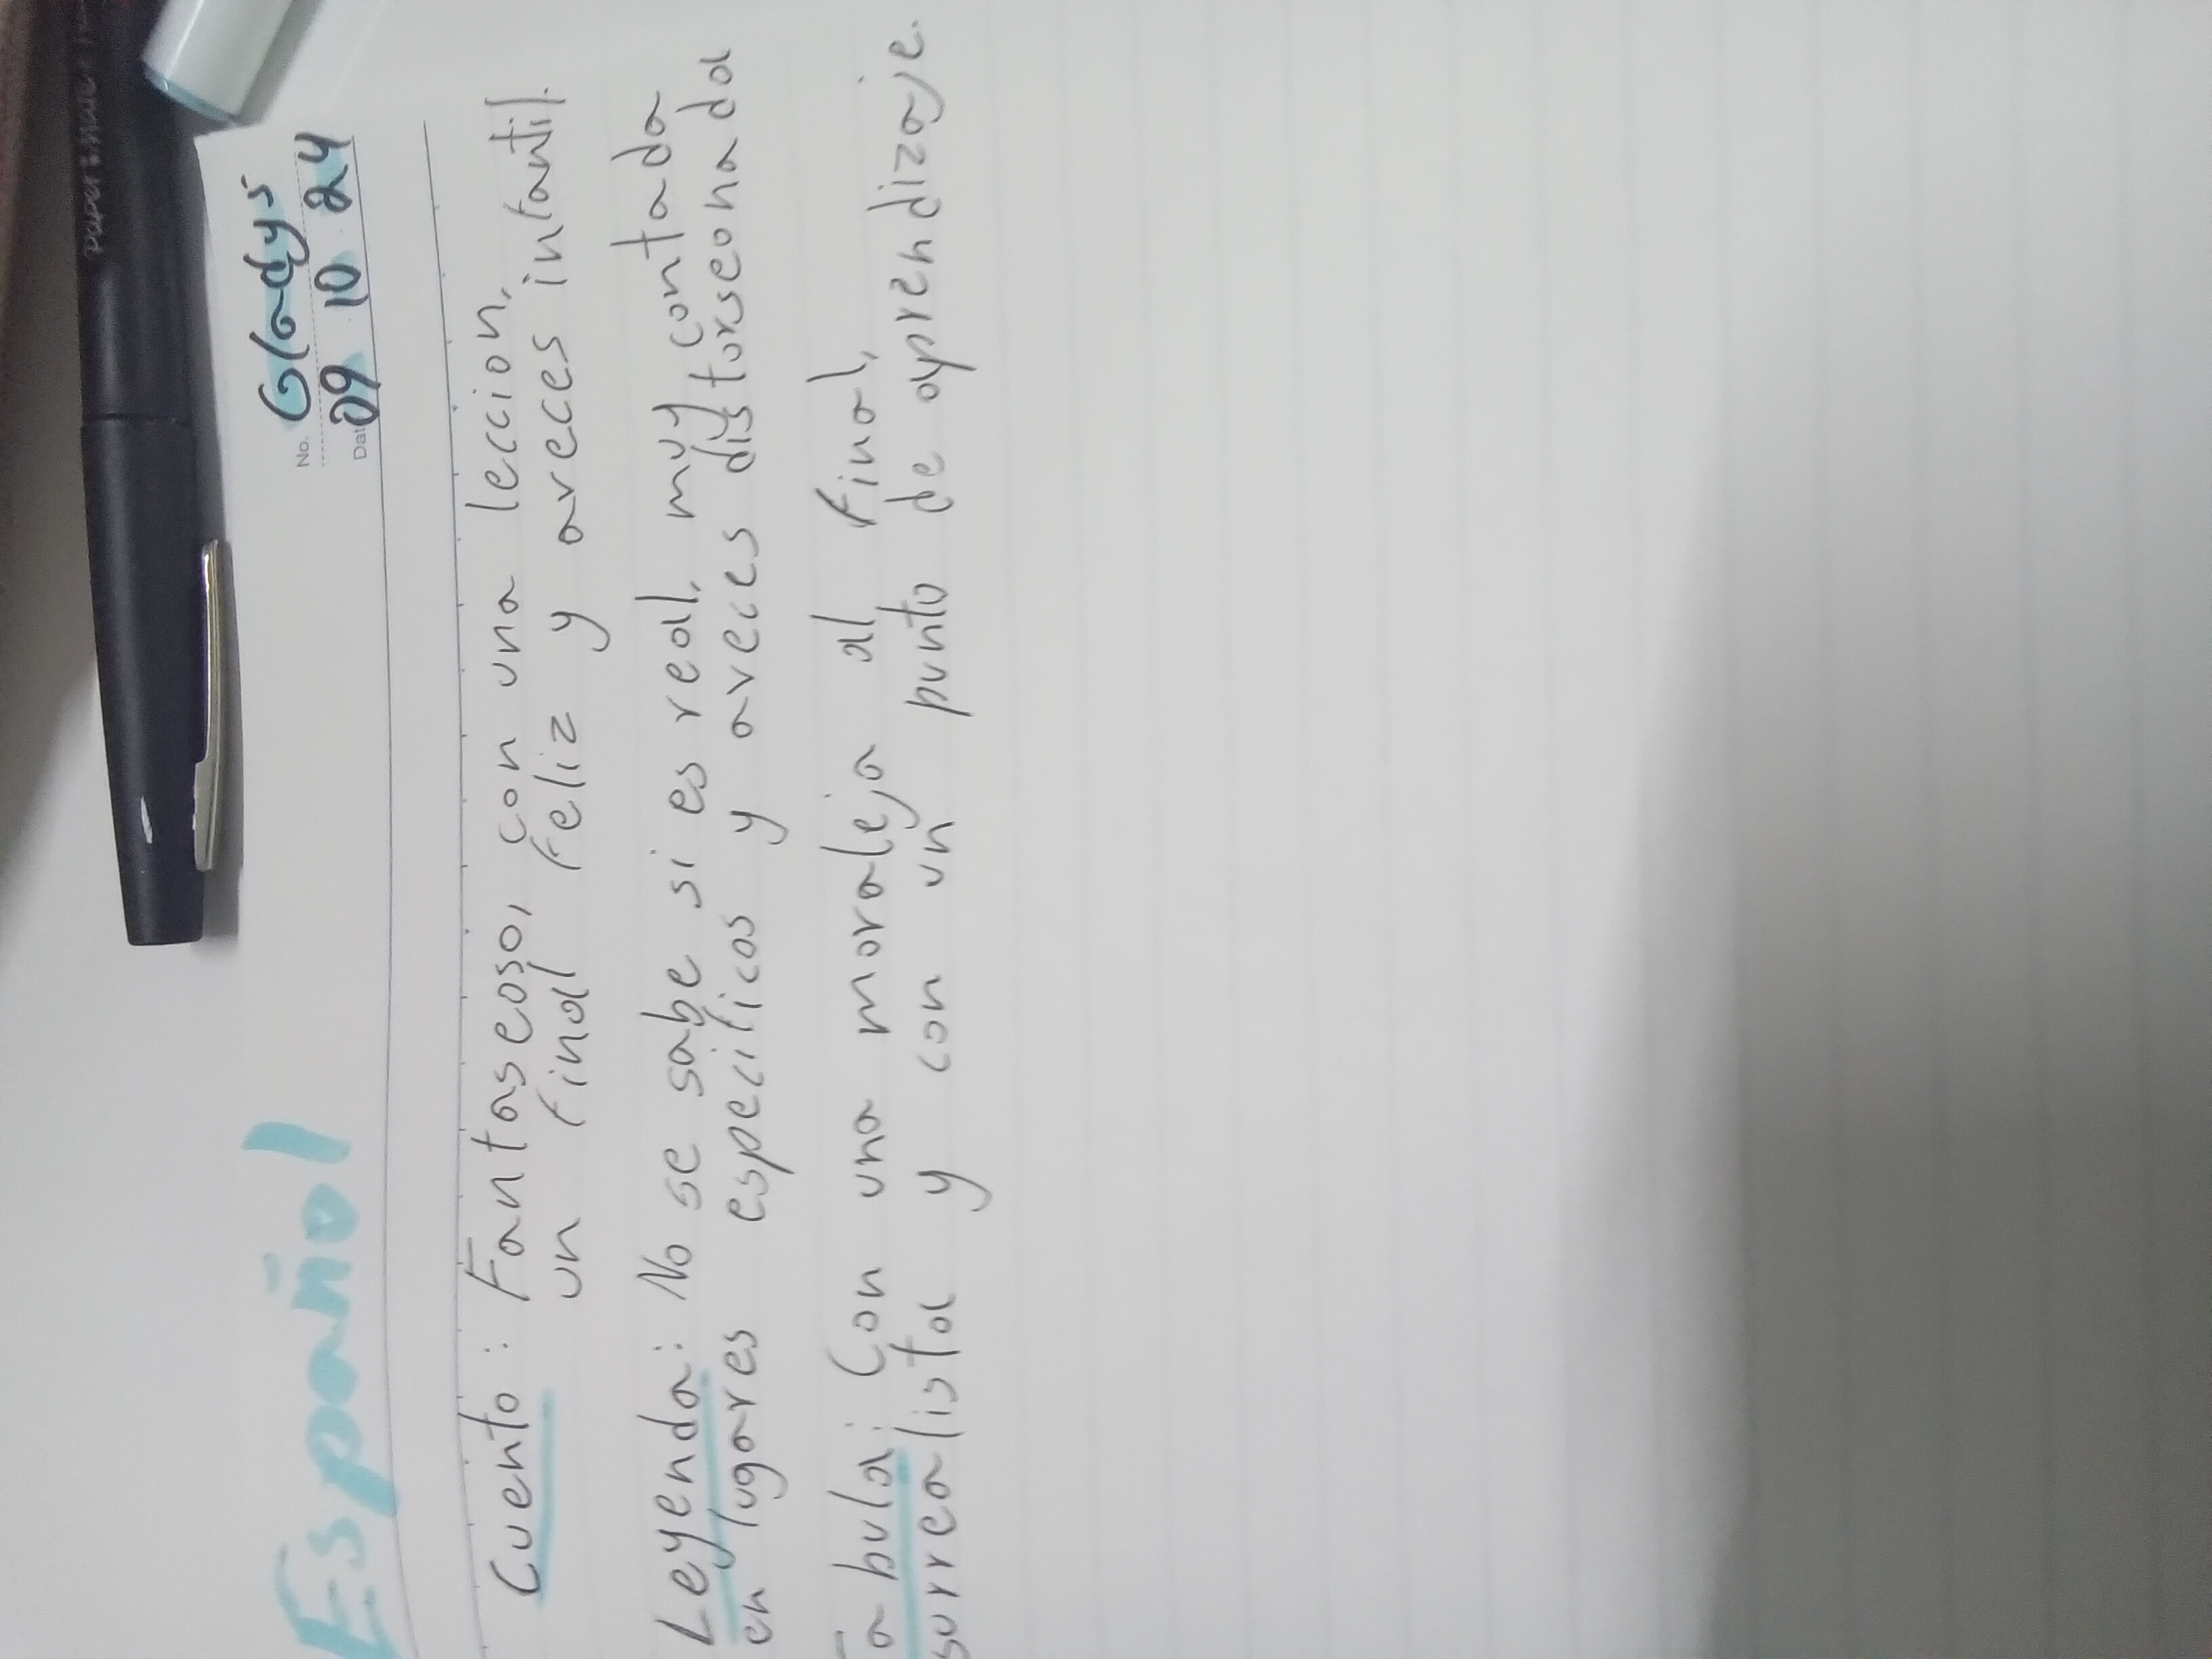 Español
No. Gladys
Dat 09 10 24
Cuento: Fantaseoso, con una leccion,
un final feliz y aveces infantil.
Leyenda: No se sabe si es real, muy contada
en lugares especificos y aveces distorseonada
abula: Con una moraleja al final,
surrealista y con un punto de aprendizaje.